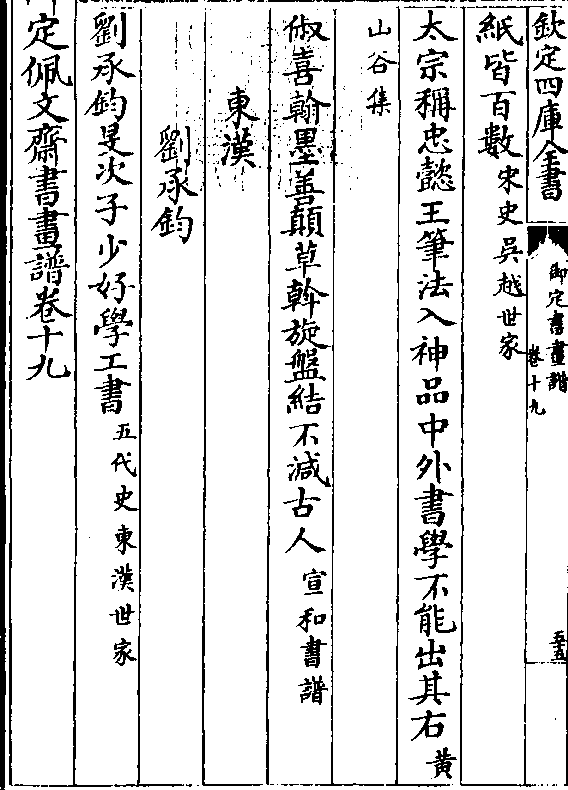 欽定四庫全書
御定書畫譜
卷十九
五五
紙皆百數宋史吳越世家
太宗稱忠懿王筆法入神品中外書學不能出其右黃
山谷集
俶喜翰墨善顛草斡旋盤結不減古人宣和書譜
東漢
劉承鈞
劉承鈞旻次子少好學工書五代史東漢世家
定佩文齋書畫譜卷十九